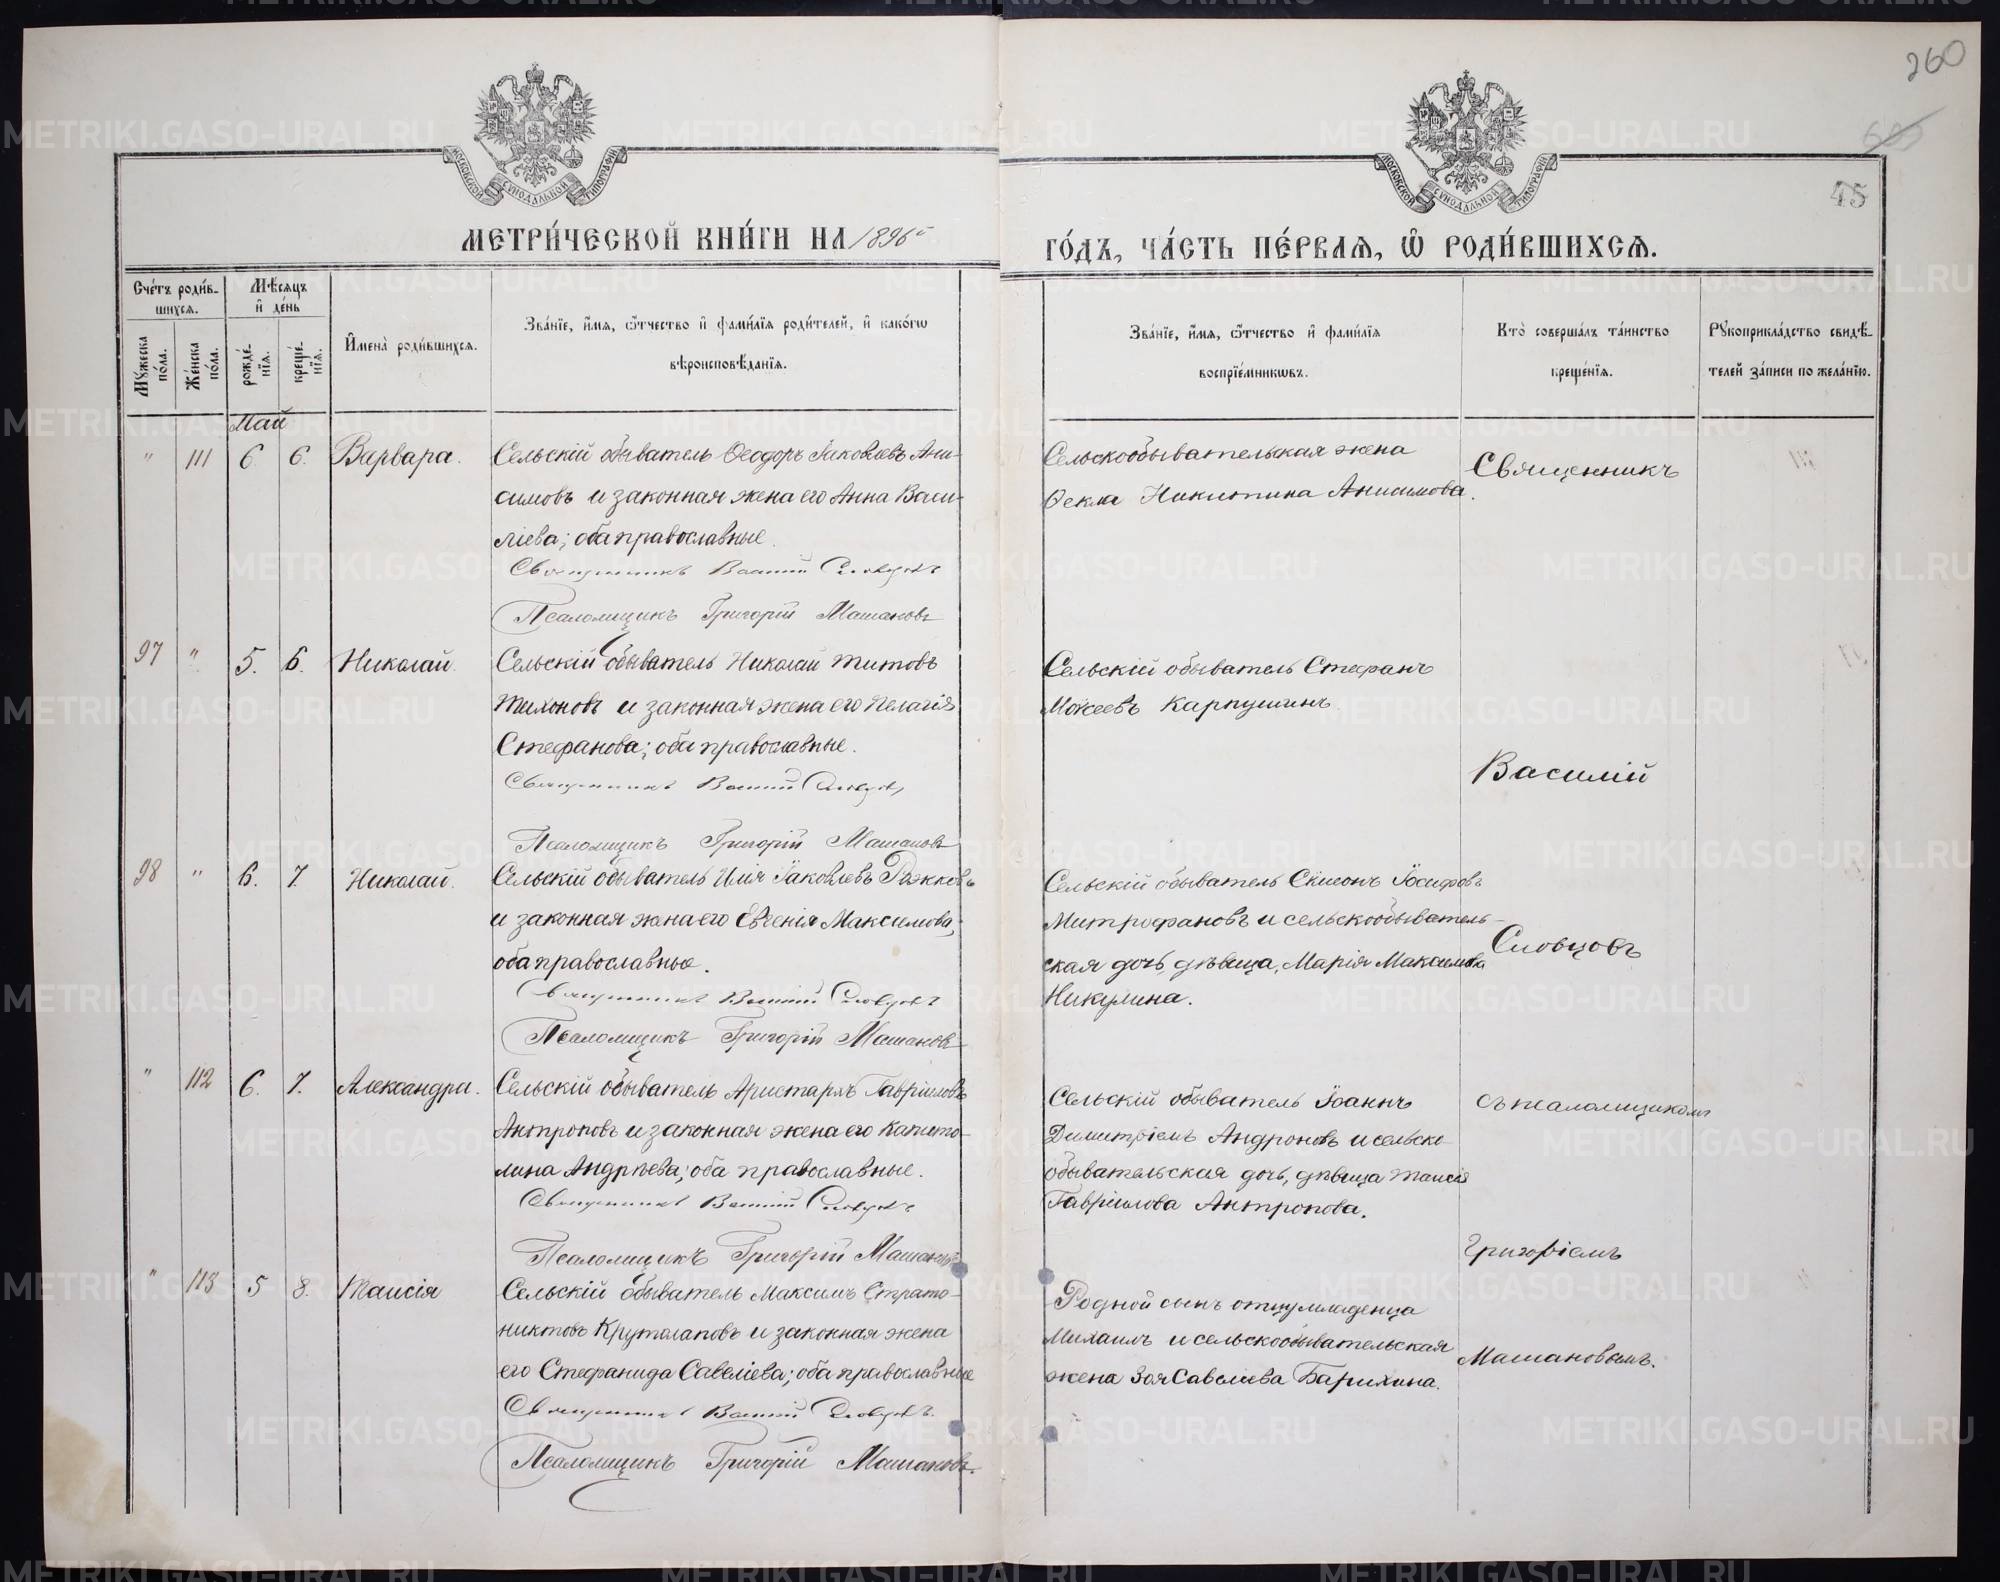 260
45
МОСКОВСКОЙ СѴНОДАЛЬНОЙ ТИПОГРАФІИ
МОСКОВСКОЙ СѴНОДАЛЬНОЙ ТИПОГРАФІИ
МЕТРИ́ЧЕСКОЙ КНИ́ГИ НА 1896й
ГО́ДЪ, ЧА́СТЬ ПЕ́РВАѦ, Ѽ РОДИ́ВШИХСѦ.
Сче́тъ роди́в-
шихсѧ.
Мѣ́сѧцъ
и҆ де́нь
Мꙋ́жеска
по́ла.
Же́нска
по́ла.
рожде́-
нїѧ.
креще́-
нїѧ.
И҆мена̀ роди́вшихсѧ.
Зва́нїе, и҆́мѧ, ѻ҆́тчество и҆ фамѝлїѧ роди́телей, и҆ како́гѡ
вѣроисповѣ́данїѧ.
Зва́нїе, и҆́мѧ, ѻ҆́тчество и҆ фамѝлїѧ
воспрїе́мникѡвъ.
Кто̀ соверша́лъ та́инство
креще́нїѧ.
Рꙋкоприкла́дство свидѣ́-
телей за́писи по жела́нїю.
Май
" 111 6. 6. Варвара.
Сельскій обыватель Ѳеодоръ Іаковлевъ Ани-
симовъ и законная жена его Анна Васи-
ліева; оба православные.
Священникъ Василій Словцовъ
Псаломщикъ Григорій Машановъ
Сельскообывательская жена
Ѳекла Никитина Анисимова.
Священникъ
97 " 5. 6. Николай.
Сельскій обыватель Николай Титовъ
Тихоновъ и законная жена его Пелагія
Стефанова; оба православные.
Священникъ Василій Словцовъ
Псаломщикъ Григорій Машановъ
Сельскій обыватель Стефанъ
Моѵсеевъ Карпушинъ.
Василій
98 " 6. 7. Николай.
Сельскій обыватель Илія Іаковлевъ
и законная жена его Евгенія Максимова;
оба православные.
Священникъ Василій Словцовъ
Псаломщикъ Григорій Машановъ
Сельскій обыватель Сѵмеонъ Іосифовъ
Митрофановъ и сельскообыватель-
ская дочь, дѣвица, Марія Максимова
Никулина.
Словцовъ
" 112 6. 7. Александра.
Сельскій обыватель Аристархъ Гавріиловъ
Антроповъ и законная жена его Капито-
лина Андреева; оба православные.
Священникъ Василій Словцовъ
Псаломщикъ Григорій Машановъ
Сельскій обыватель Іоаннъ
Димитріевъ Андроновъ и сельско-
обывательская дочь, дѣвица Таисія
Гавріилова Антропова.
съ псаломщикомъ
Григоріемъ
" 113 5 8. Таисія
Сельскій обыватель Максимъ Страто-
никовъ Круталаповъ и законная жена
его Стефанида Савеліева; оба православные
Священникъ Василій Словцовъ.
Псаломщикъ Григорій Машановъ.
Родной сынъ отцу младенца
Михаилъ и сельскообывательская
жена Зоя Савелиева Барыкина.
Машановымъ.
METRIKI.GASO-URAL.RU